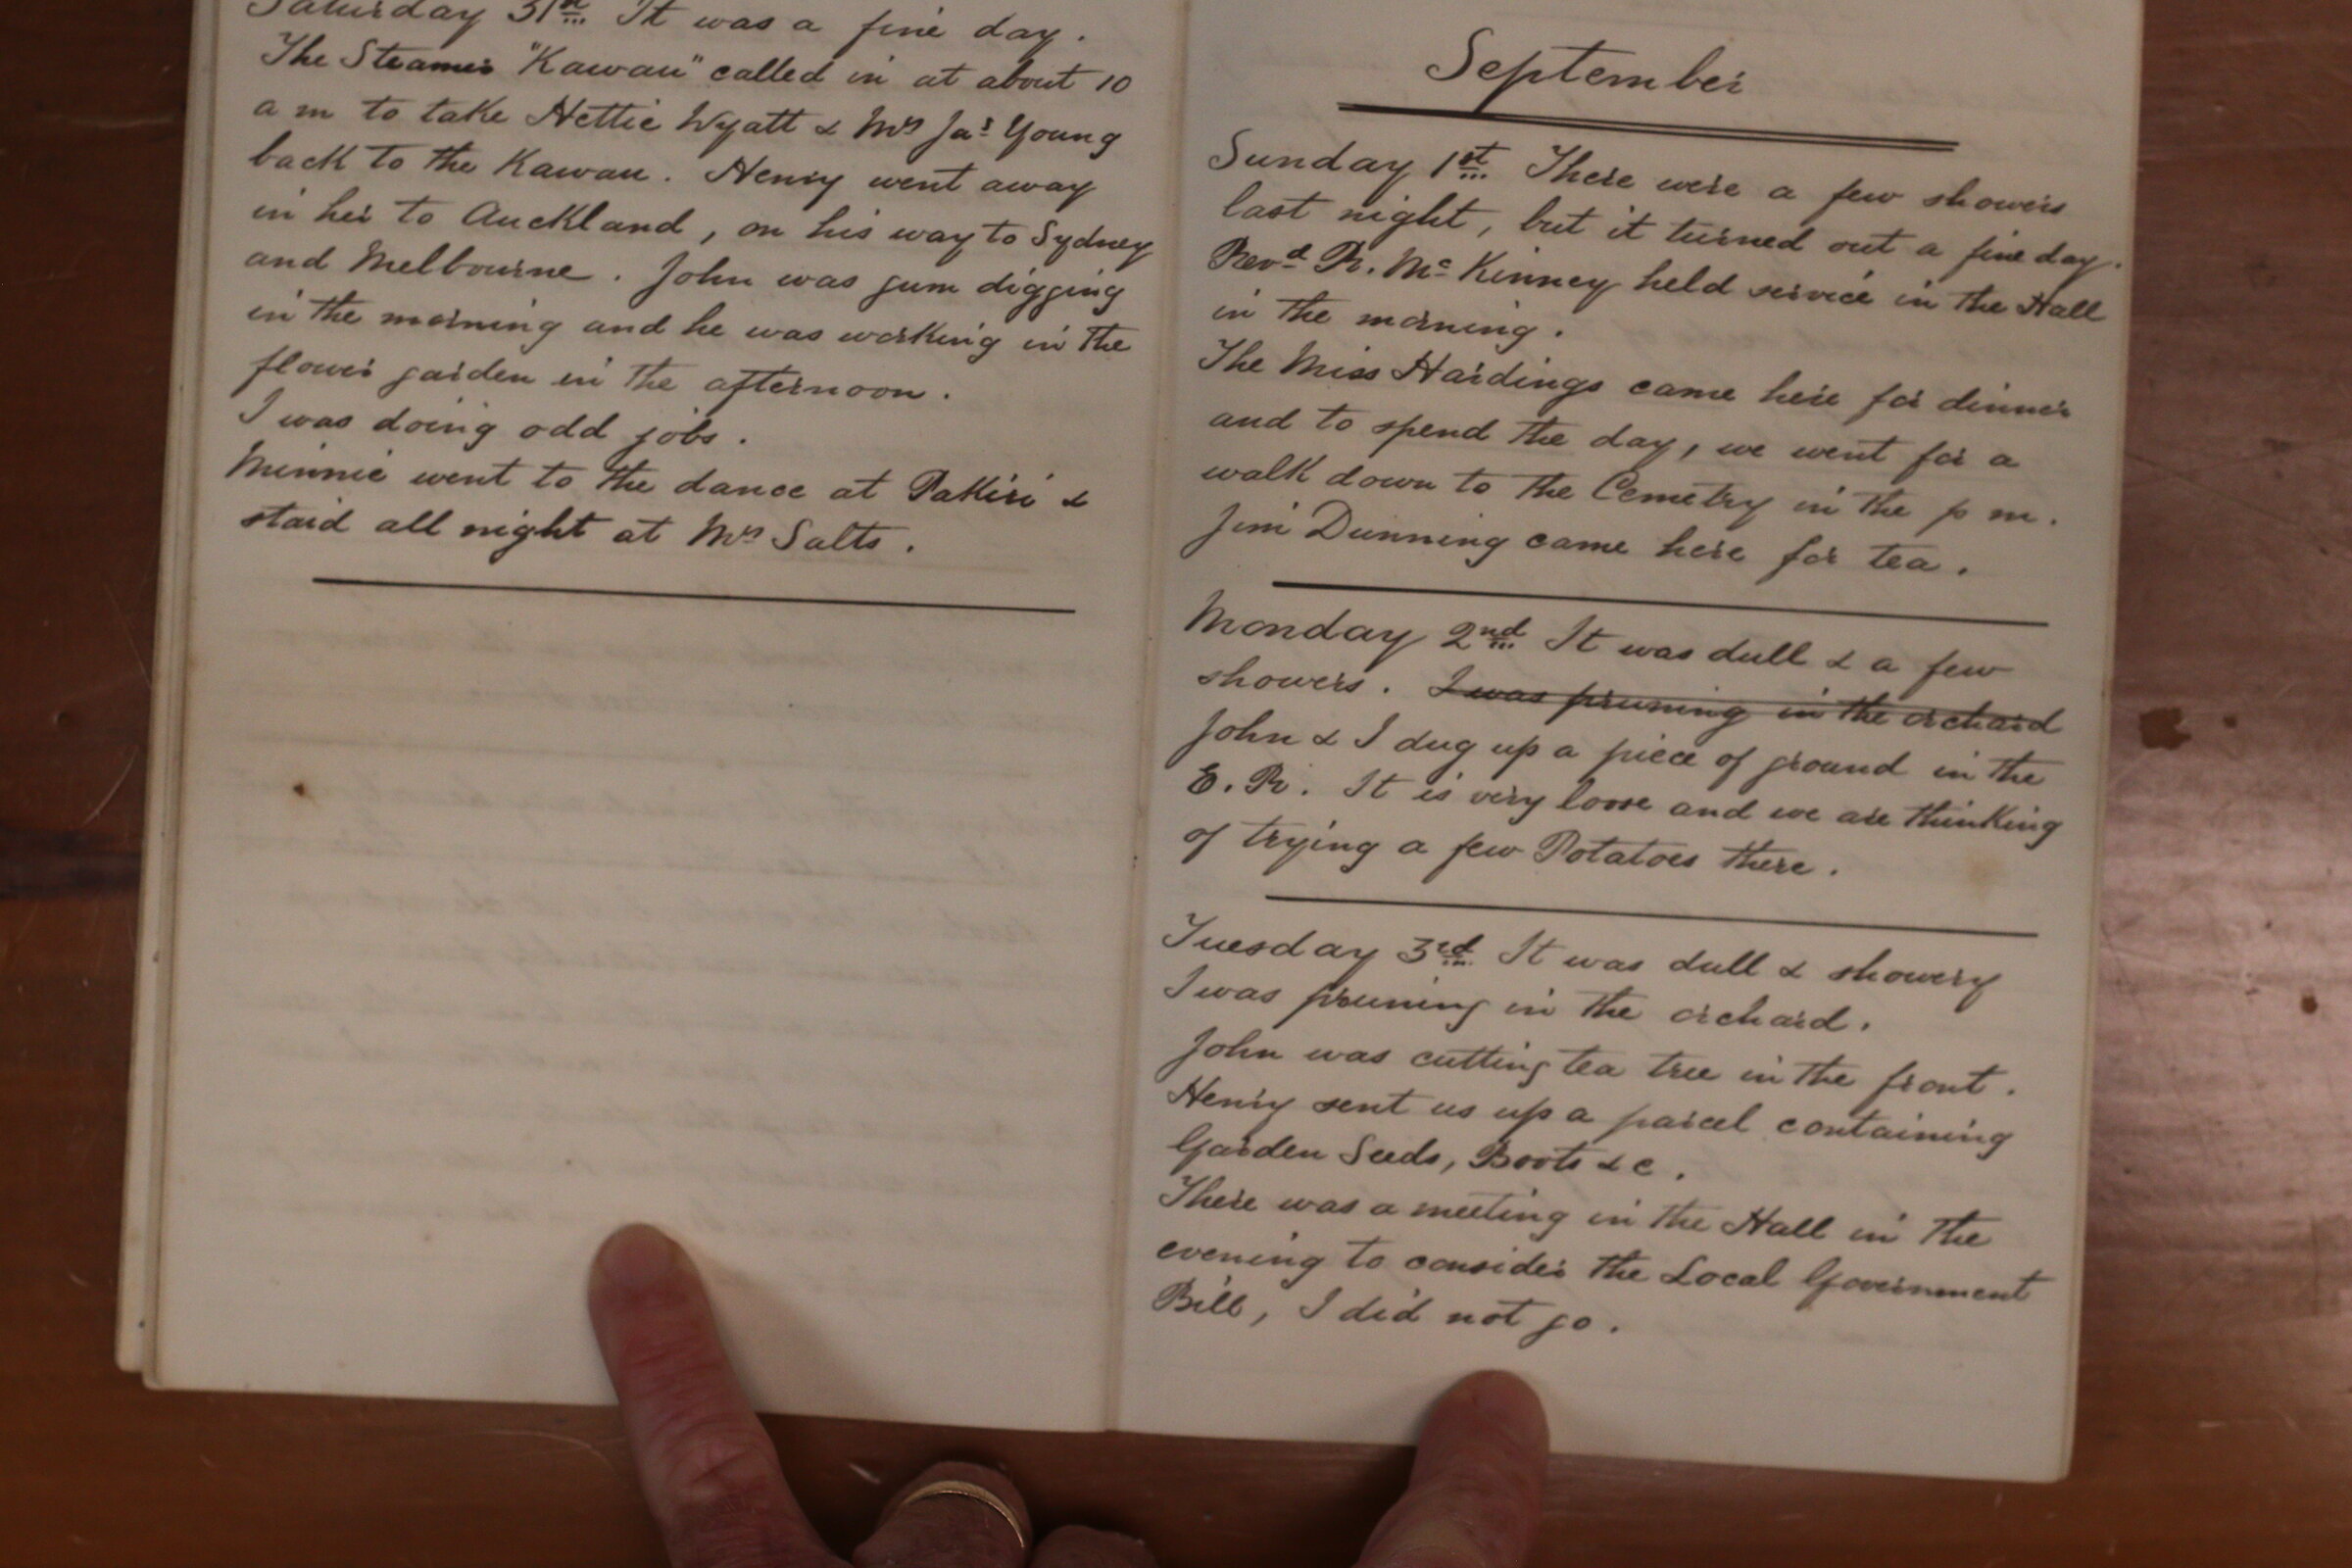 Saturday 31st It was a fine day.
The Steamer "Kawau" called in at about 10
a m to take Hettie Wyatt & Mrs Jas Young
back to the Kawau. Henry went away
in her to Auckland, on his way to Sydney
and Melbourne. John was gum digging
in the morning and he was working in the
flower garden in the afternoon.
I was doing odd jobs.
Minnie went to the dance at Pakiri &
staid all night at Mrs Salts.
September
Sunday 1st There were a few showers
last night, but it turned out a fine day.
Revd R. Mc Kinney held service in the Hall
in the morning.
The Miss Hardings came here for dinner
and to spend the day, we went for a
walk down to the Cemetry in the p m.
Jim Dunning came here for tea.
Monday 2nd It was dull & a few
showers. I was pruning in the orchard
John & I dug up a piece of ground in the
E. R. It is very loose and we are thinking
of trying a few Potatoes there.
Tuesday 3rd It was dull & showery
I was pruning in the orchard.
John was cutting tea tree in the front.
Henry sent us up a parcel containing
Garden Seeds, Boots & c.
There was a meeting in the Hall in the
evening to consider the Local Government
Bill, I did not go.